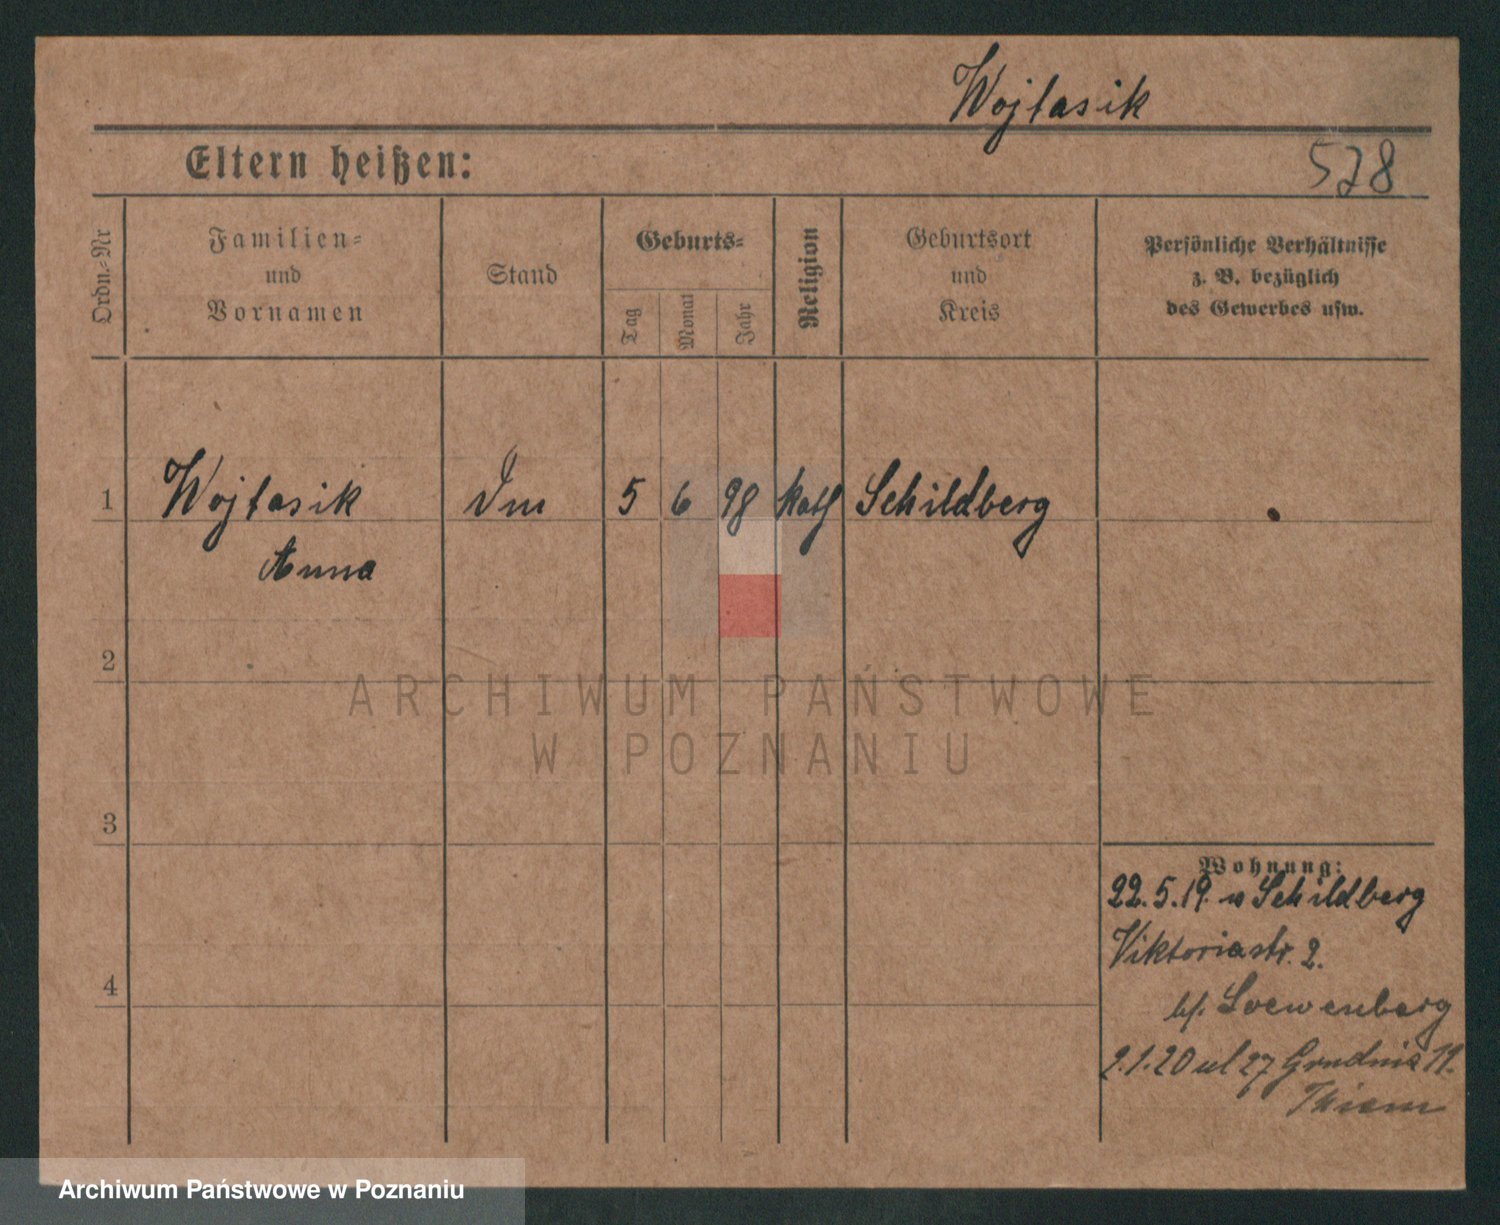 Wojtasik
Eltern heißen:
578
Ordn.=Nr
Familien=
und
Vornamen
Stand
Geburts=
Tag
Monat
Jahr
Religion
Geburtsort
und
Kreis
Persönliche Verhältnisse
z. B. bezüglich
des Gewerbes usw.
1 Wojtasik 5 6 98 kath Schildberg
Anna
2
ARCHIWUM PAŃSTWOWE
W POZNANIU
3
Wohnung:
22.5.19. v Schildberg
Viktoriastr. 2.
4
b/. Loewenberg
2.1.20 ul 27 Grudnia 11.
Thiem
Archiwum Państwowe w Poznaniu